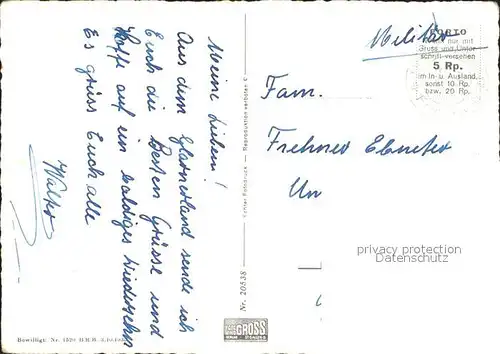 Meine Lieben!
Aus dem Glarnerland sende ich
Euch die Besten Grüsse und
Hoffe auf ein baldiges Wiedersehn
Es grüss Euch alle
Walter
Militär
PORTO
nur mit
Gruss und Unter-
schrift versehen
5 Rp.
im In- u. Ausland,
sonst 10 Rp.
bzw. 20 Rp.
Fam.
Frehner
Un
privacy protection
Datenschutz
Echter Fotodruck — Reproduktion verboten
Nr. 20538
GROSS
Bewillig. Nr. 1520 B.R.B. 3.10.1939